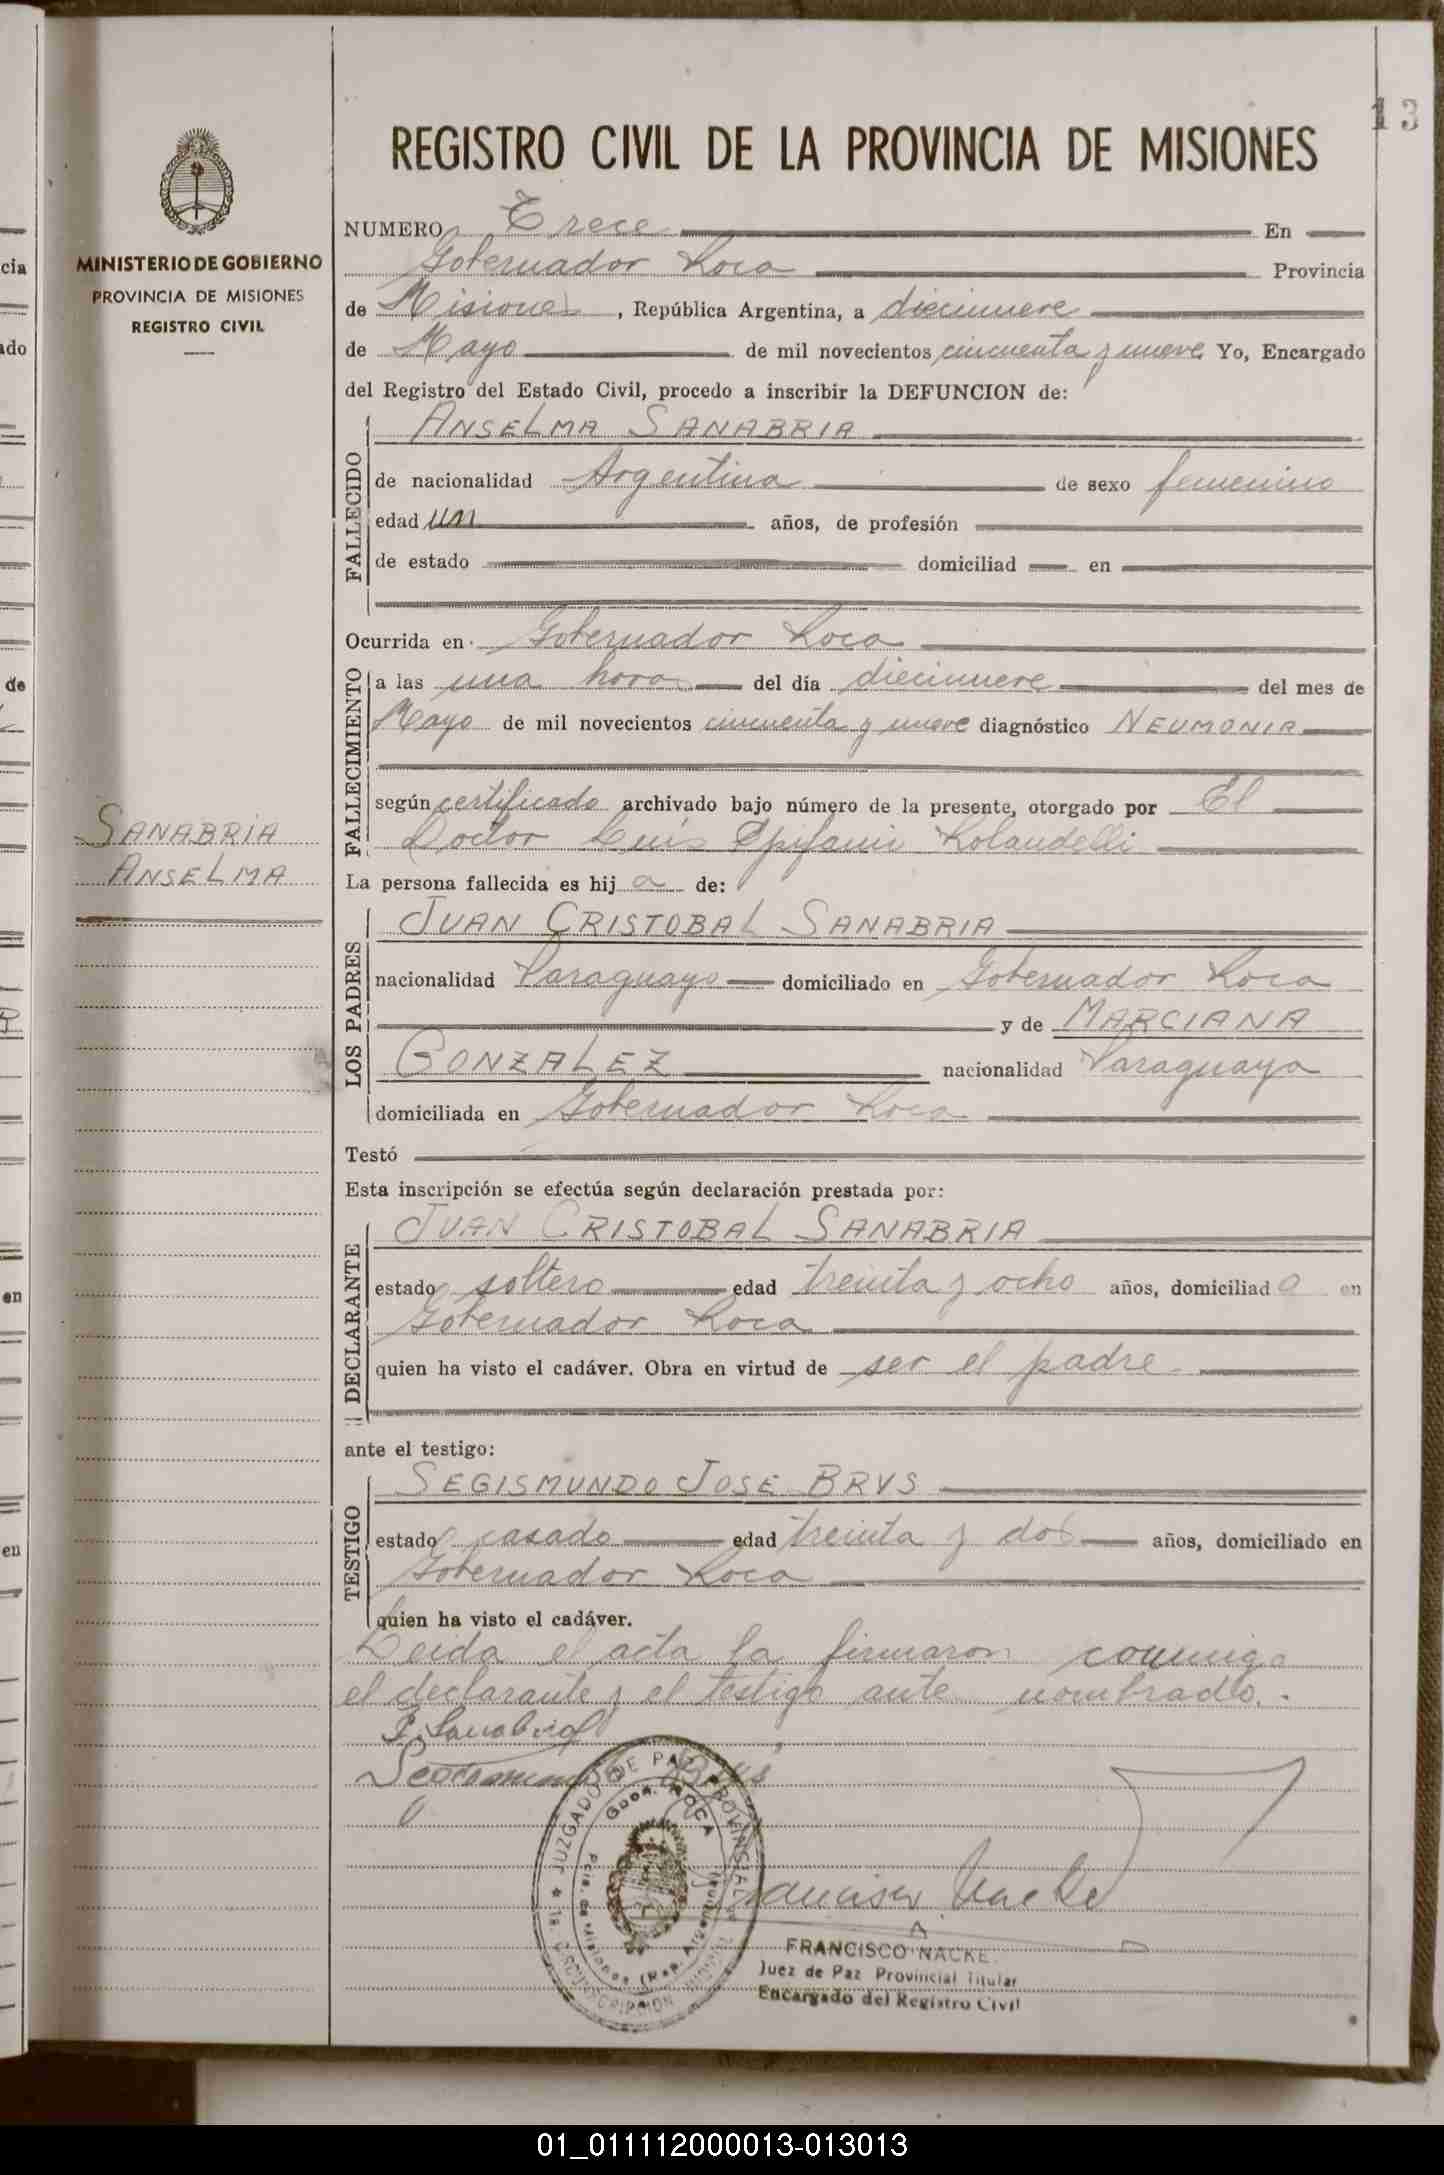 13
REGISTRO CIVIL DE LA PROVINCIA DE MISIONES
MINISTERIO DE GOBIERNO
PROVINCIA DE MISIONES
REGISTRO CIVIL
NUMERO Trece En
Gobernador Roca Provincia
de Misiones, República Argentina, a diecinueve
de Mayo de mil novecientos cincuenta y nueve Yo, Encargado
del Registro del Estado Civil, procedo a inscribir la DEFUNCION de:
FALLECIDO
ANSELMA SANABRIA
de nacionalidad Argentina de sexo femenino
edad un años, de profesión
de estado domiciliad en
Ocurrida en Gobernador Roca
FALLECIMIENTO
a las una hora del día diecinueve del mes de
Mayo de mil novecientos cincuenta y nueve diagnóstico NEUMONIA
según certificado archivado bajo número de la presente, otorgado por El
Doctor Luis Epifanio Rolandelli
SANABRIA
ANSELMA
La persona fallecida es hij a de:
LOS PADRES
JUAN CRISTOBAL SANABRIA
nacionalidad Paraguayo domiciliado en Gobernador Roca
y de MARCIANA
GONZALEZ nacionalidad Paraguaya
domiciliada en Gobernador Roca
Testó
Esta inscripción se efectúa según declaración prestada por:
DECLARANTE
JUAN CRISTOBAL SANABRIA
estado soltero edad treinta y ocho años, domiciliad o en
Gobernador Roca
quien ha visto el cadáver. Obra en virtud de ser el padre.
ante el testigo:
TESTIGO
SEGISMUNDO JOSE BRUS
estado casado edad treinta y dos años, domiciliado en
Gobernador Roca
quien ha visto el cadáver.
Leida el acta la firmaron conmigo
el declarante y el testigo ante nombrado.-
Sanabria
JUZGADO DE PAZ PROVINCIAL
GDOR. ROCA
Pcia. de Misiones (Rep. Argentina)
1a. CIRCUNSCRIPCION JUDICIAL
Francisco Nacke
FRANCISCO NACKE
Juez de Paz Provincial Titular
Encargado del Registro Civil
01_011112000013-013013